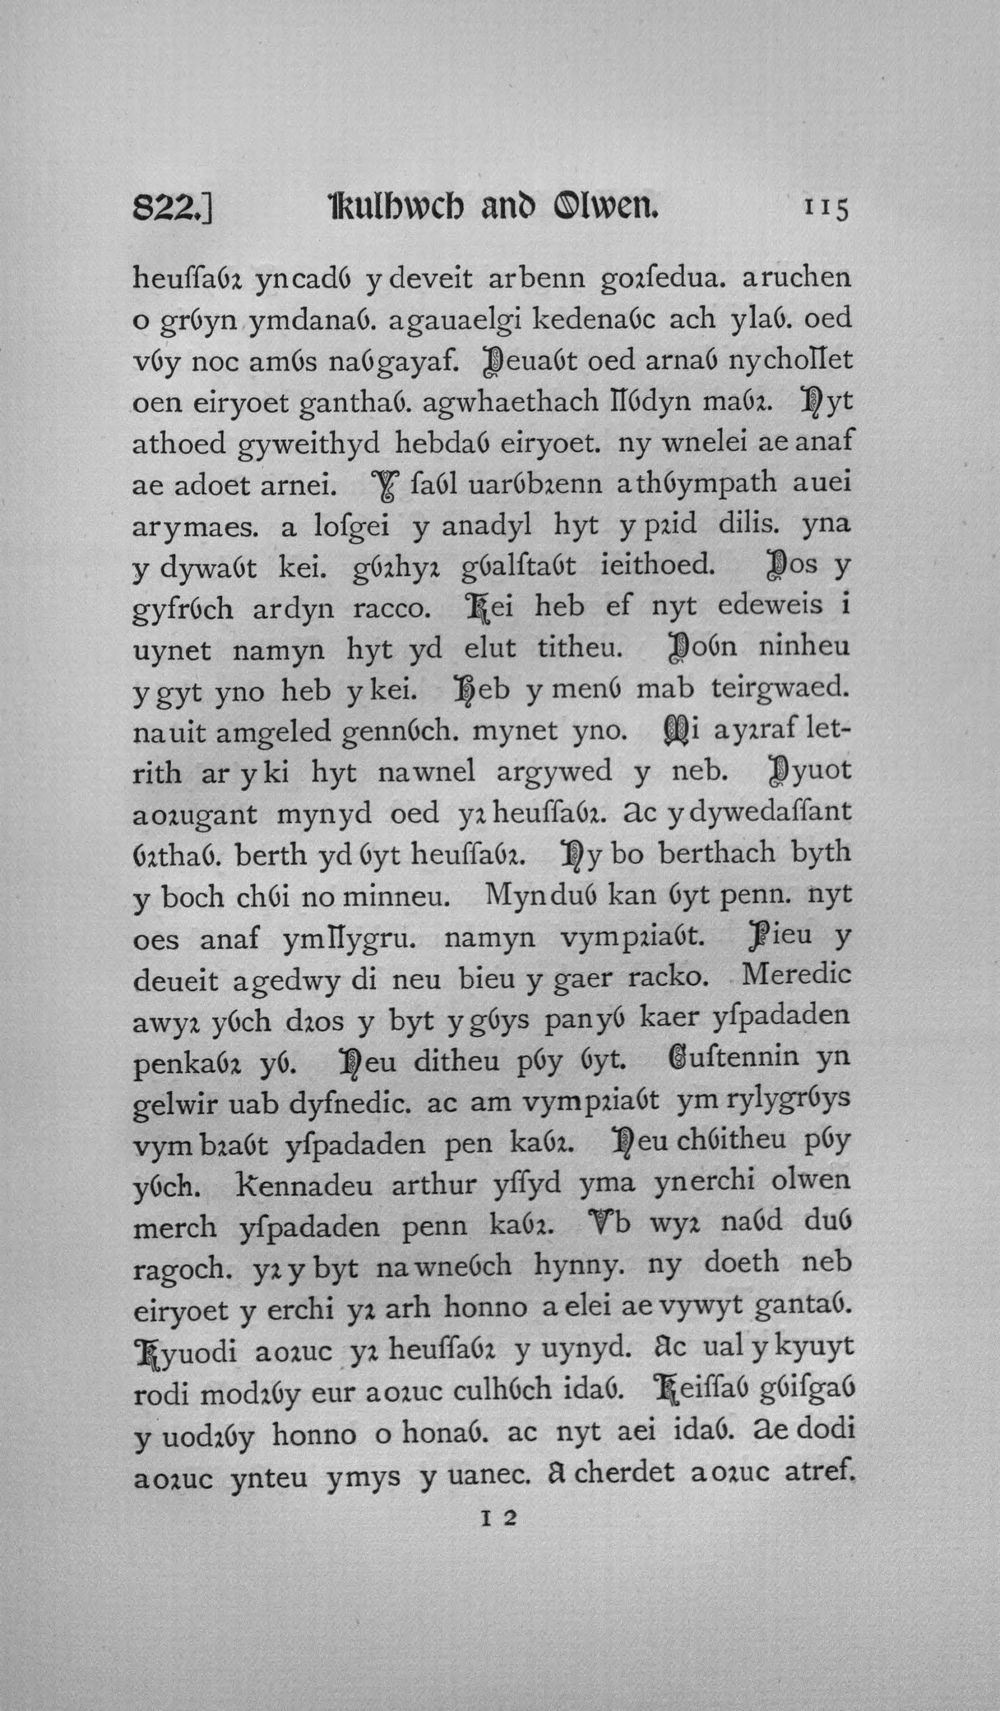 822.] Kulhwch and Olwen. 115
heuſſaỽꝛ yn cadỽ y deveit ar benn goꝛſedua. a ruchen
o grỽyn ymdanaỽ. a gauaelgi kedenaỽc ach y laỽ. oed
vỽy noc amỽs naỽ gayaf. Deuaỽt oed arnaỽ ny choỻet
oen eiryoet ganthaỽ. agwhaethach ỻỽdyn maỽꝛ. Nyt
athoed gyweithyd hebdaỽ eiryoet. ny wnelei ae anaf
ae adoet arnei. Y ſaỽl uarỽbꝛenn a thỽympath a uei
ar y maes. a loſgei y anadyl hyt y pꝛid dilis. yna
y dywaỽt kei. gỽꝛhyꝛ gỽalſtaỽt ieithoed. Dos y
gyfrỽch ar dyn racco. Kei heb ef nyt edeweis i
uynet namyn hyt yd elut titheu. Doỽn ninheu
y gyt yno heb y kei. Heb y menỽ mab teirgwaed.
na uit amgeled gennỽch. mynet yno. Mi a yꝛraf let-
rith ar y ki hyt na wnel argywed y neb. Dyuot
a oꝛugant mynyd oed yꝛ heuſſaỽꝛ. Ac y dywedaſſant
ỽꝛthaỽ. berth yd ỽyt heuſſaỽꝛ. Ny bo berthach byth
y boch chỽi no minneu. Myn duỽ kan ỽyt penn. nyt
oes anaf ym ỻygru. namyn vym pꝛiaỽt. Pieu y
deueit a gedwy di neu bieu y gaer racko. Meredic
a wyꝛ yỽch dꝛos y byt y gỽys pan yỽ kaer yſpadaden
penkaỽꝛ yỽ. Neu ditheu pỽy ỽyt. Guſtennin yn
gelwir uab dyfnedic. ac am vym pꝛiaỽt ym rylygrỽys
vym bꝛaỽt yſpadaden pen kaỽꝛ. Neu chỽitheu pỽy
yỽch. Kennadeu arthur yſſyd yma yn erchi olwen
merch yſpadaden penn kaỽꝛ. Vb wyꝛ naỽd duỽ
ragoch. yꝛ y byt na wneỽch hynny. ny doeth neb
eiryoet y erchi yꝛ arh honno a elei ae vywyt gantaỽ.
Kyuodi a oꝛuc yꝛ heuſſaỽꝛ y uynyd. Ac ual y kyuyt
rodi modꝛỽy eur a oꝛuc culhỽch idaỽ. Keiſſaỽ gỽiſgaỽ
y uodꝛỽy honno o honaỽ. ac nyt aei idaỽ. Ae dodi
a oꝛuc ynteu ymys y uanec. A cherdet a oꝛuc atref.
I 2